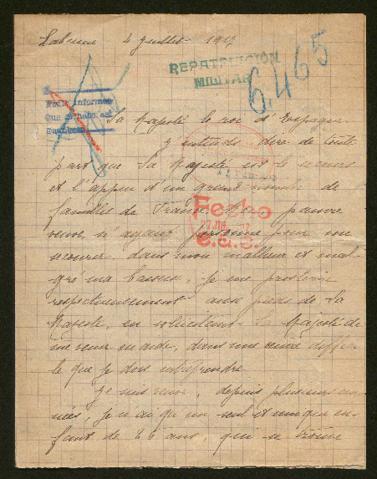 Labenne 4 Juillet 1917
REPATRIACIÓN
MILITAR
6.465
Pedir informes
Sa Majesté le roi d'Espagne
J'entends dire de toute
part que Sa Majesté est le secours
et l'appui d'un grand nombre de
famille de France. Moi pauvre
veuve, n'ayant personne pour me
secourir dans mon malheur et mal-
gré ma bassesse, je me prosterne
respectueusement aux pieds de Sa
Majesté, en sollicitant Sa Majesté de
me venir en aide, dans une œuvre diffici-
le que je dois entreprendre.
Fecho
Je suis veuve, depuis plusieurs an-
nées, je n'ai qu'un seul et unique en-
fant de 26 ans, qui se trouve